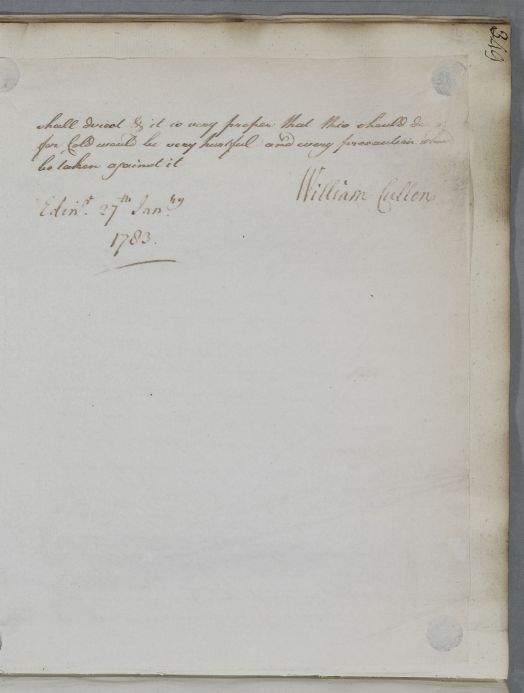 349
shall direct & it is very proper that this should
for Cold would be very hurtful and every precaution
be taken against it
William Cullen
Edinr. 27th Janry
1783.